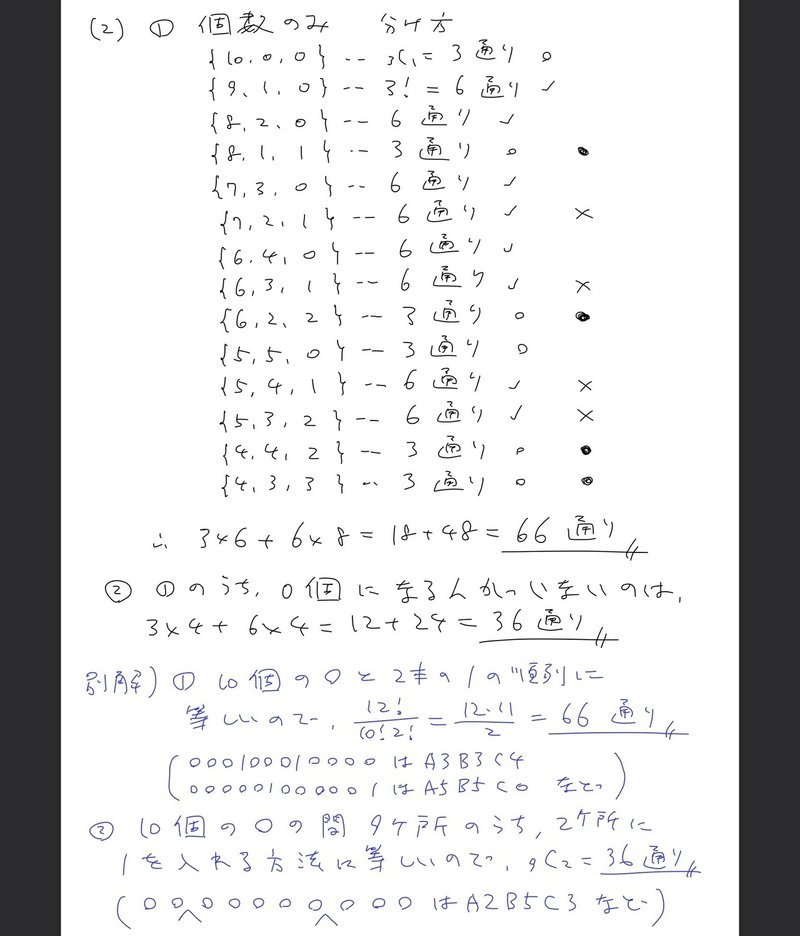 (2) ① 個数のみ 分け方
{10, 0, 0} -- ₃C₁ = 3通り ○
{9, 1, 0} -- 3! = 6通り ✓
{8, 2, 0} -- 6通り ✓
{8, 1, 1} -- 3通り ○ ●
{7, 3, 0} -- 6通り ✓
{7, 2, 1} -- 6通り ✓ ×
{6, 4, 0} -- 6通り ✓
{6, 3, 1} -- 6通り ✓ ×
{6, 2, 2} -- 3通り ○ ●
{5, 5, 0} -- 3通り ○
{5, 4, 1} -- 6通り ✓ ×
{5, 3, 2} -- 6通り ✓ ×
{4, 4, 2} -- 3通り ○ ●
{4, 3, 3} -- 3通り ○ ●
∴ 3×6 + 6×8 = 18+48 = 66通り
② ①のうち、0個になる人がいないのは、
3×4 + 6×4 = 12+24 = 36通り
別解) ① 10個の○と2本の1の順列に
等しいので、12!/10!2! = 12・11/2 = 66通り
(○○○1○○○1○○○○ は A3B3C4
○○○○○1○○○○○1 は A5B5C0 など)
② 10個の○の間9ヶ所のうち、2ヶ所に
1を入れる方法に等しいので、₉C₂ = 36通り
(○○∧○○○○○∧○○○ は A2B5C3 など)